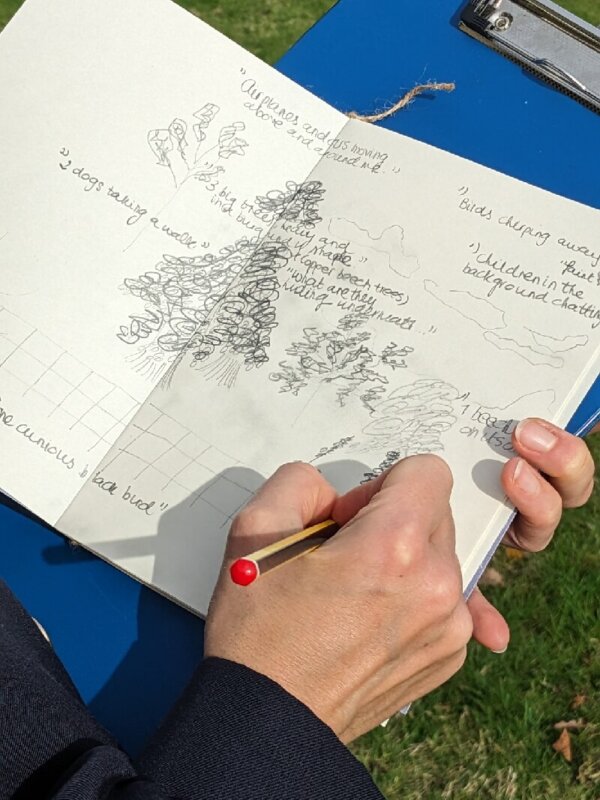 " Airplanes and cars moving
above and around me. "
" 2 dogs taking a walk "
" 3 big trees, heavy and
in a bushy shape "
(copper beech trees)
"what are they
hiding underneath.. "
" Birds chirping away
"faint
" children in the
background chatting
" 1 beech
on its own
one curious black bird"